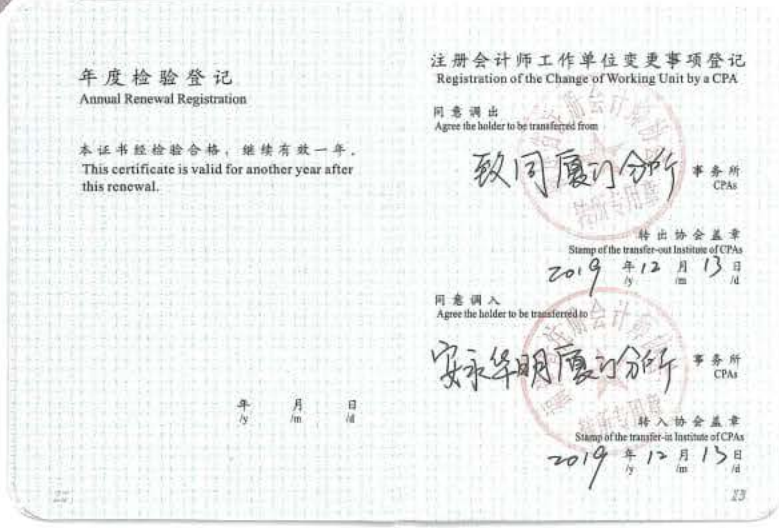 年度检验登记
Annual Renewal Registration
本证书经检验合格，继续有效一年。
This certificate is valid for another year after
this renewal.
年 月 日
/y /m /d
注册会计师工作单位变更事项登记
Registration of the Change of Working Unit by a CPA
同意调出
Agree the holder to be transferred from
致同厦门分所 事务所
CPAs
转出协会盖章
Stamp of the transfer-out Institute of CPAs
2019 年 12 月 13 日
/y /m /d
同意调入
Agree the holder to be transferred to
安永华明厦门分所 事务所
CPAs
转入协会盖章
Stamp of the transfer-in Institute of CPAs
2019 年 12 月 13 日
/y /m /d
23